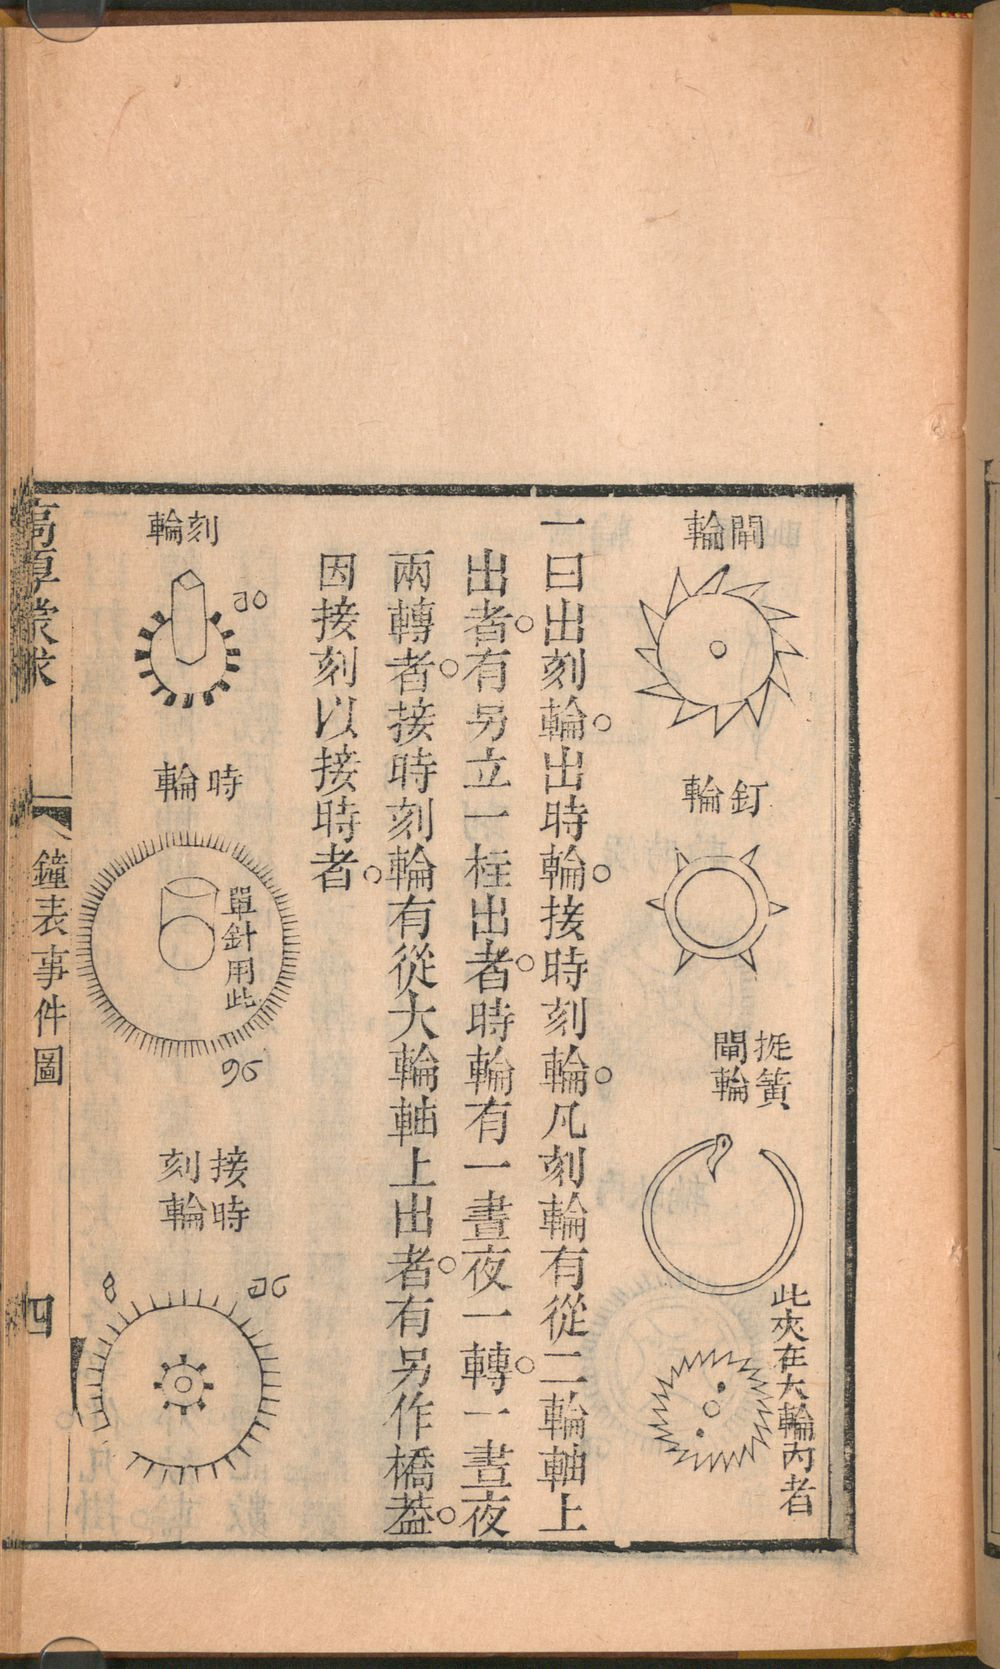 閘輪
釘輪
挺簧
閘輪
此夾在大輪內者
一曰出刻輪。出時輪。接時刻輪。凡刻輪有從二輪軸上
出者。有另立一柱出者。時輪有一晝夜一轉。一晝夜
兩轉者。接時刻輪有從大輪軸上出者。有另作橋葢。
因接刻以接時者。
刻輪
時輪
單針用此
96
接時
刻輪
8
高厚蒙求
鐘表事件圖
四